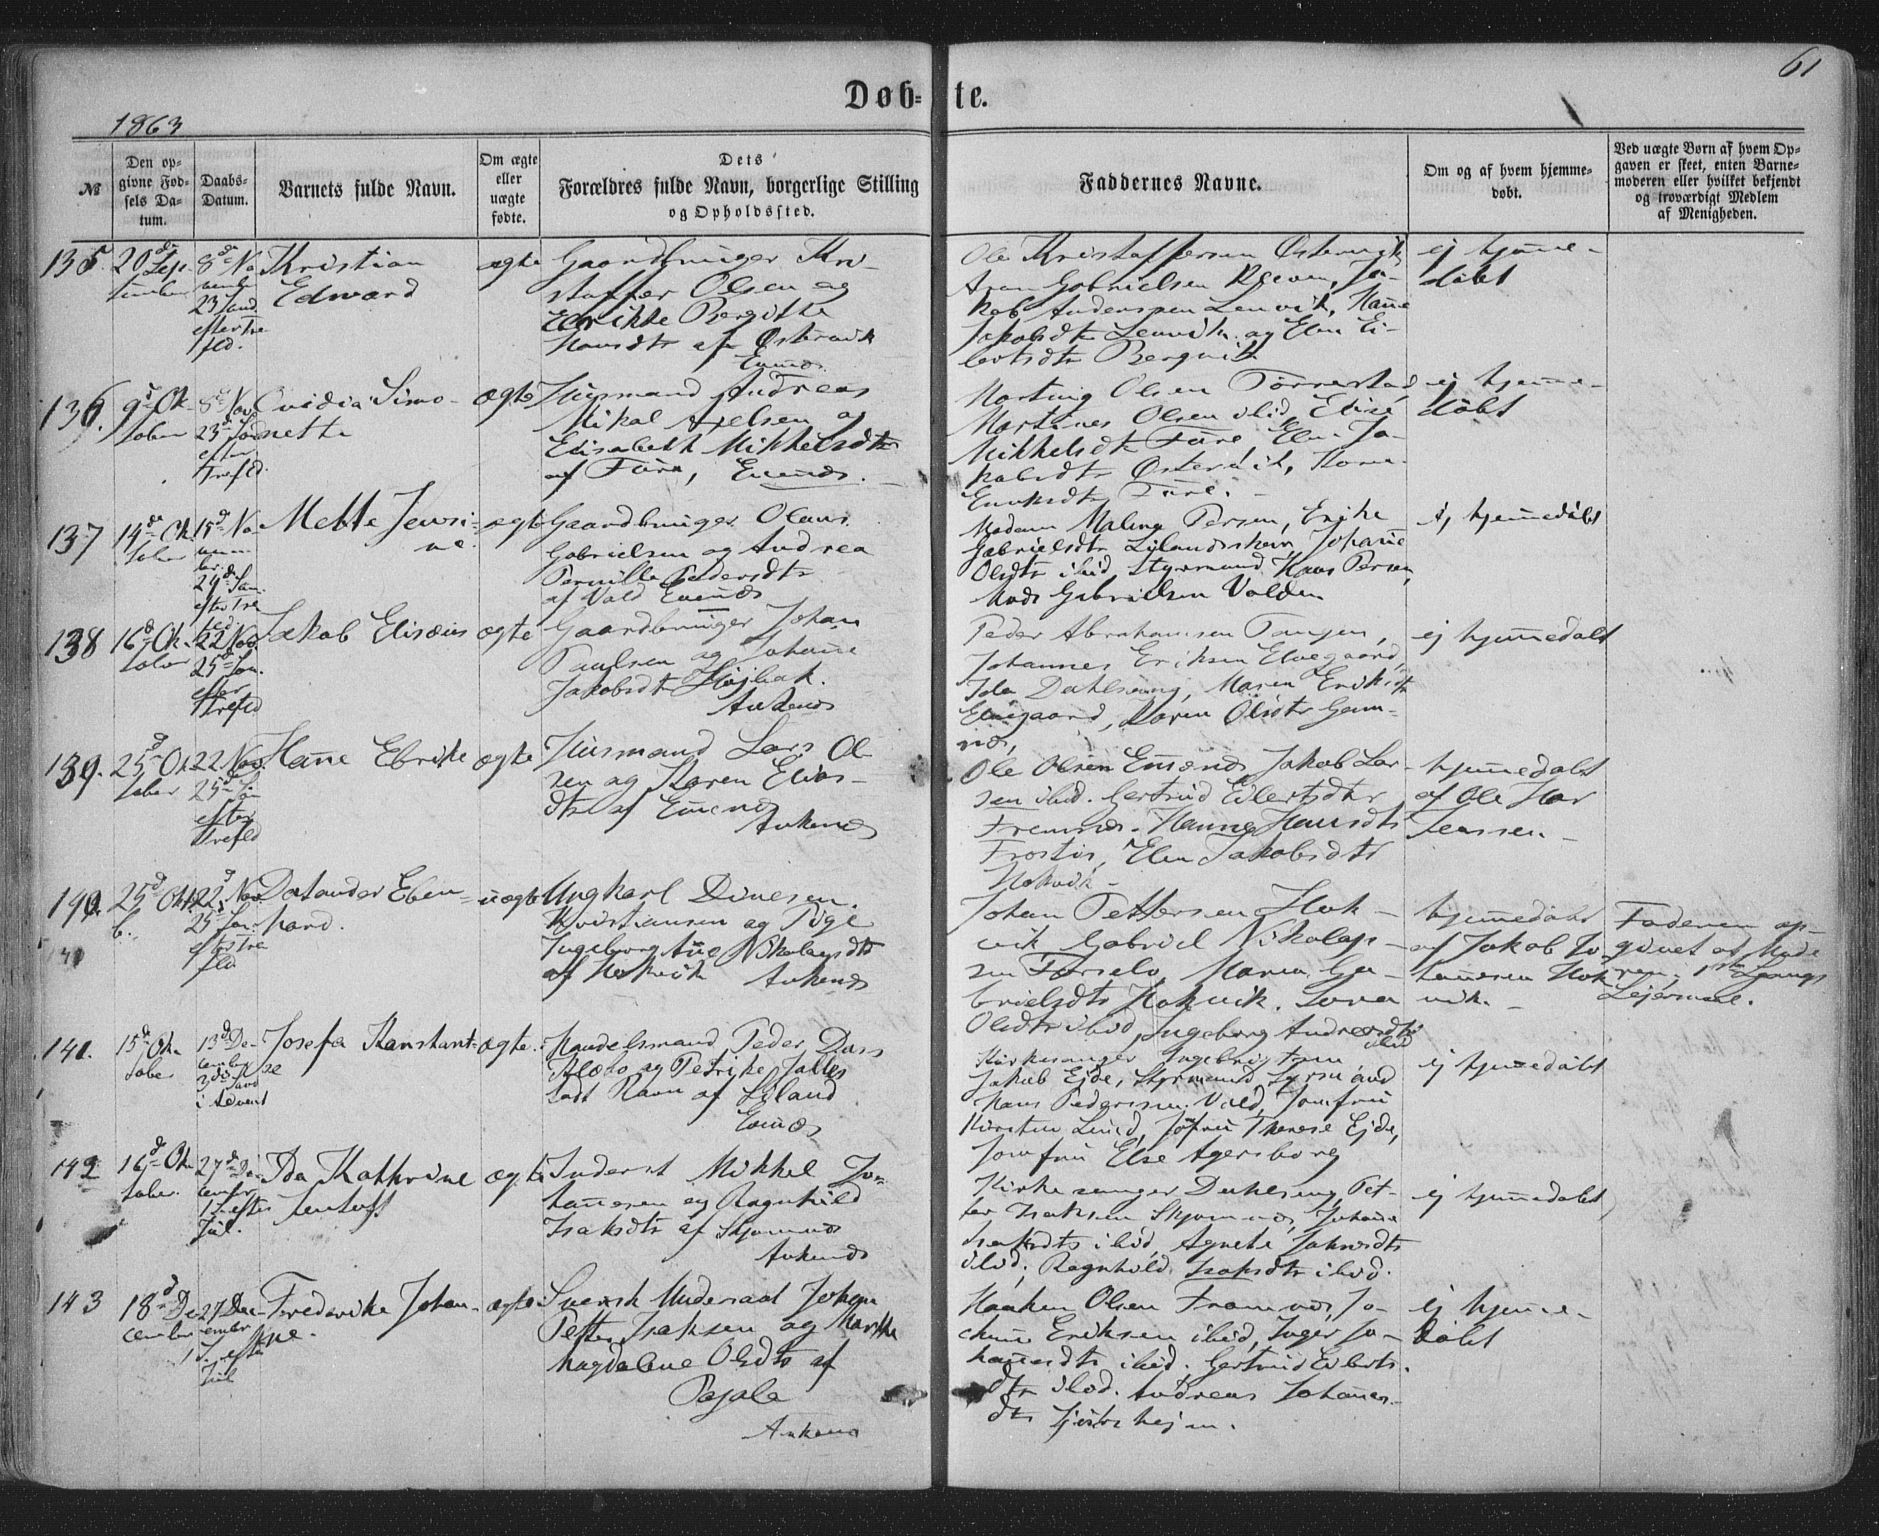 61
Døb= te.
1863
№
Den op=
givne Fød=
sels Da=
tum.
Daabs=
Datum.
Barnets fulde Navn.
Om ægte
eller
uægte
fødte.
Dets
Forældres fulde Navn, borgerlige Stilling
og Opholdssted.
Faddernes Navne.
Om og af hvem hjemme=
døbt.
Ved uægte Børn af hvem Op=
gaven er skeet, enten Barne=
moderen eller hvilket bekjendt
og troværdigt Medlem
af Menigheden.
135.
20de Sep-
tember
8de No
vembr
23 Sønd
efter Tre
fld.
Kristian
Edward
ægte
Gaardbruger Kri-
stoffer Olsen og
Elrikke Bergitte
Hansdtr af Østervik
Evenæs
Ole Kristoffersen Østervik
Aron Gabrielsen Ja-
kob Anderssen Lenvik, Hanne
Jakobsdtr Lenvik og Elen Ei-
lertsdtr Bergvik
ej hjemme-
døbt
136.
9d Ok-
tober
8d Nov
23d Sønd
efter
Trefld.
Ovidia Simo-
nette
ægte
Husmand Andreas
Mikal Axelsen og
Elisabeth Mikkelsdtr
af Fure, Evenæs.
Marting Olsen Tørrestad,
Martines Olsen ibid, Elise
Mikkelsdtr Fure, Elen Ja-
kobsdtr Østervik,
Fure.
ej hjemme-
døbt
137
14de Ok-
tober
15d No-
vem-
br.
24d Søn
efter Tre
fld
Mette Jensi-
ne.
ægte
Gaardbruger Olaus
Gabrielsen og Andrea
Pernille Pedersdtr
af Vold Evenæs
Madam Maling Persen, Erike
Gabrielsdtr Lilandskar, Johanne
Olsdtr ibid, Styrmand Hans Persen,
Mads Gabrielsen Volden
ej hjemmedøbt
138
16d Ok-
tober
22 Nov.
25d Søn.
efter
Trefld
Jakob Elisæus
ægte
Gaardbruger Johan
Paulsen og Johanne
Jakobsdtr Højbak.
Ankenæs
Peder Abrahamsen Tangen,
Johannes Eriksen Elvegaard,
Ida Dahlseng, Maren Eriksdtr
Elvegaard, Karen Olsdtr
næs,
ej hjemmedøbt
139.
25d Ok
tober
22 Nov
25d Søn
efter
Trefld
Hanne Ebrike
ægte
Husmand Lars Ol-
sen og Karen Elias-
dtr af Emenæs
Ankenæs
Ole Olsen Emenæs, Jakob Lar-
sen ibid. Gertrud Eilertsdtr
Fremnæs. Hanna Hansdtr
Trostis, Elen Jakobsdtr
Hokvik
hjemmedøbt
af Ole Har
Jenssen.
140.
25d Oktb.
22. Nov
25de Søn
efter Tre
fld
Dalander Eben-
hard.
uægte
Ungkarl Dinesen
Kristiansen og Pige
Ingeborg Ane Nikolaysdtr
af Hokvik
Ankenæs
Johan Pettersen Hok-
vik, Gabriel Nikolay-
sen Forselv, Maren Ga-
brielsdtr Hokvik. Lorna
Olsdtr ibid, Ingeborg Andreasdtr
ibid
hjemmedøbt
af Jakob Jo
hannesen Hok
vik.
Faderen op-
givet af Mode
ren, 1ste Gangs
Lejermaal.
141.
15de Ok-
tober
13d De-
cember
3die Sønd
i Advent
Josefa Konstant-
se
ægte.
Handelsmand Peder Dass
Klæbo og Petrike Jalles
Ravn af Liland
Evenæs
Kirkesanger Ingebrigtsen
Jakob Ejde, Styrmand
Hans Pederssen Vold, Jomfru
Kirsten Lund, Jofru Therese Ejde,
Jomfru Else Agersborg
ej hjemmedøbt
142
16d Ok
tober.
27de De-
cember
1 S. efter
Jul.
Ida Kathrine
Jentoft
ægte
Inderst Mikkel Jo-
hannesen og Ragnhild
Isaksdtr af Skjomnæs
Ankenæs
Kirkesanger Dahlseng, Pet-
ter Isaksen Skjomnæs, Johanne
Isaksdtr ibid, Agnete
ibid, Ragnhild Isaksdtr ibid.
ej hjemmedøbt
143
18d De-
cember
27 Dec-
ember
1 S. efter
Jul
Frederike Johan-
ne.
ægte
Svensk Undersaat Johan
Petter Isaksen og Marthe
Magdalene Olsdtr af
Pajala
Ankenæs
Haaken Olsen Framnæs, Jo-
chum Eriksen ibid, Inger Jo-
hannesdtr ibid. Gertrud Eilerts-
dtr ibid. Andreas Johannes-
dtr
ej hjemme-
døbt